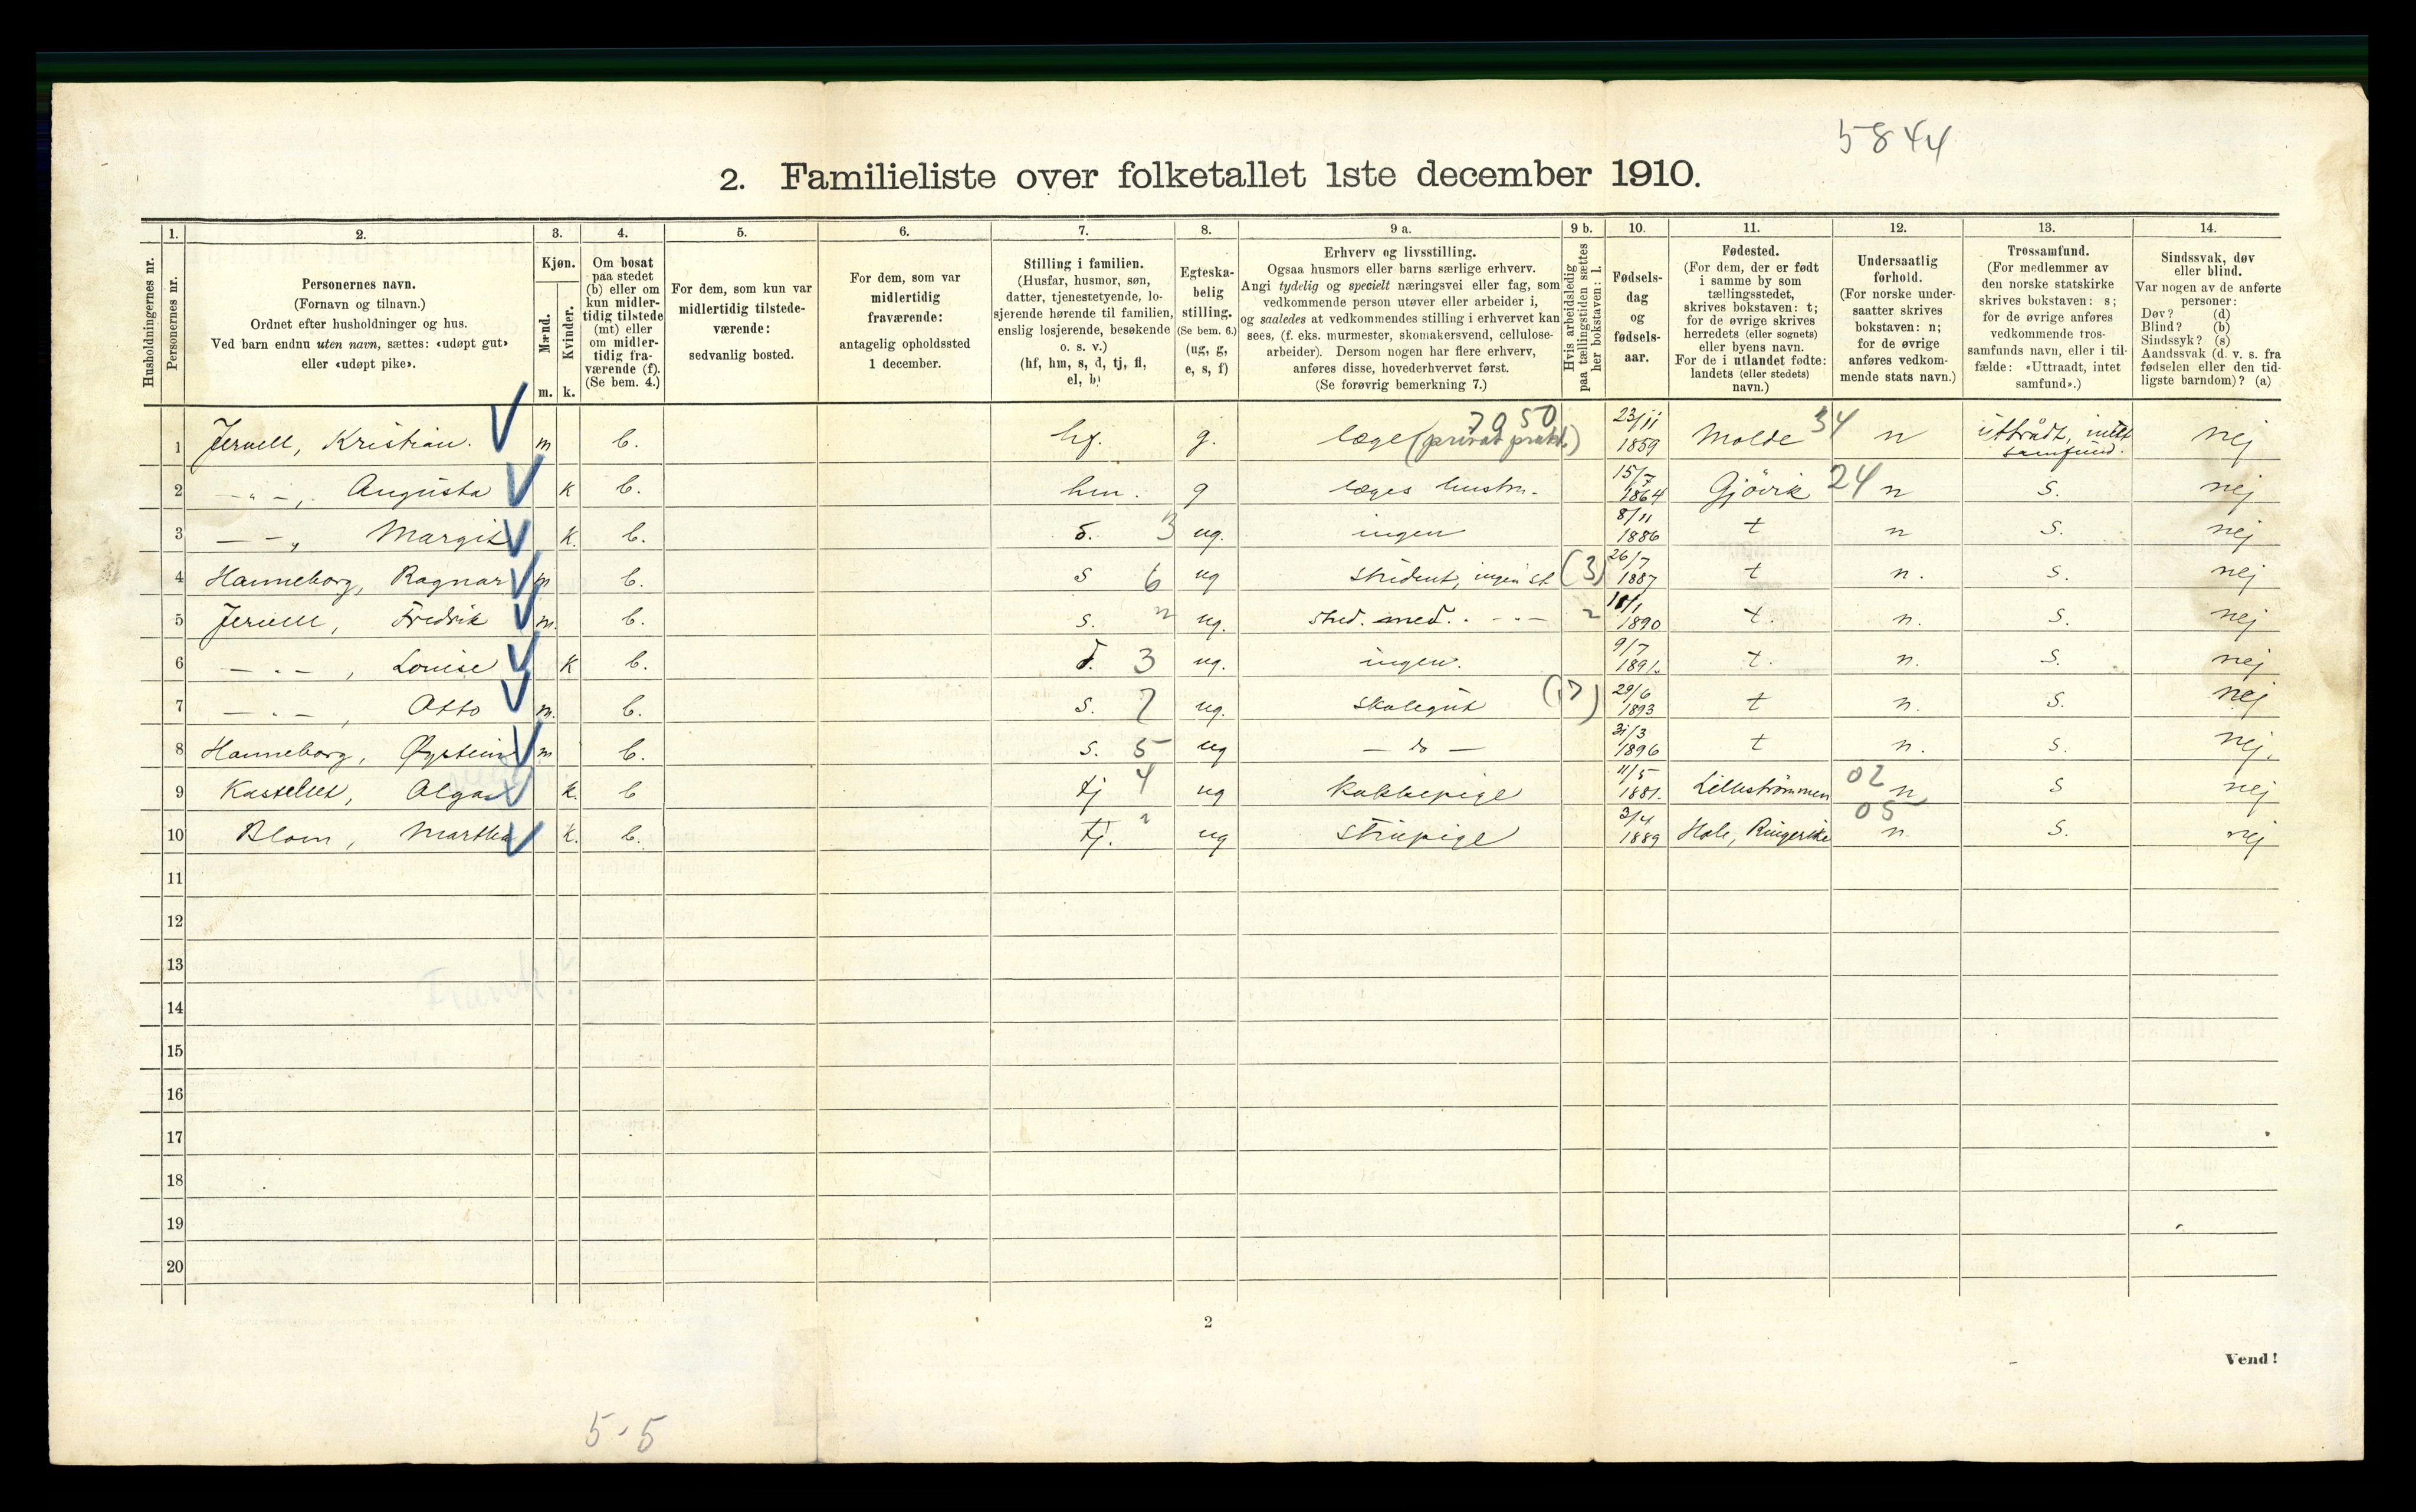 5844
2. Familieliste over folketallet 1ste december 1910.
Husholdningernes nr.
1. Personernes nr.
2. Personernes navn. (Fornavn og tilnavn.) Ordnet efter husholdninger og hus. Ved barn endnu uten navn, sættes: «udøpt gut» eller «udøpt pike».
3. Kjøn. Mænd. m. Kvinder. k.
4. Om bosat paa stedet (b) eller om kun midlertidig tilstede (mt) eller om midlertidig fraværende (f). (Se bem. 4.)
5. For dem, som kun var midlertidig tilstedeværende: sedvanlig bosted.
6. For dem, som var midlertidig fraværende: antagelig opholdssted 1 december.
7. Stilling i familien. (Husfar, husmor, søn, datter, tjenestetyende, losjerende hørende til familien, enslig losjerende, besøkende o. s. v.) (hf, hm, s, d, tj, fl, el, b)
8. Egteskabelig stilling. (Se bem. 6.) (ug, g, e, s, f)
9 a. Erhverv og livsstilling. Ogsaa husmors eller barns særlige erhverv. Angi tydelig og specielt næringsvei eller fag, som vedkommende person utøver eller arbeider i, og saaledes at vedkommendes stilling i erhvervet kan sees, (f. eks. murmester, skomakersvend, cellulosearbeider). Dersom nogen har flere erhverv, anføres disse, hovederhvervet først. (Se forøvrig bemerkning 7.)
9 b. Hvis arbeidsledig paa tællingstiden sættes her bokstaven: l.
10. Fødselsdag og fødselsaar.
11. Fødested. (For dem, der er født i samme by som tællingsstedet, skrives bokstaven: t; for de øvrige skrives herredets (eller sognets) eller byens navn. For de i utlandet fødte: landets (eller stedets) navn.)
12. Undersaatlig forhold. (For norske undersaatter skrives bokstaven: n; for de øvrige anføres vedkommende stats navn.)
13. Trossamfund. (For medlemmer av den norske statskirke skrives bokstaven: s; for de øvrige anføres vedkommende trossamfunds navn, eller i tilfælde: «Uttraadt, intet samfund».)
14. Sindssvak, døv eller blind. Var nogen av de anførte personer: Døv? (d) Blind? (b) Sindssyk? (s) Aandssvak (d. v. s. fra fødselen eller den tidligste barndom)? (a)
1 Jervell, Kristian. m b. hf. g. læge (privat prakt.) 7050 23/11 1859 Molde 34 n uttrådt, intet samfund. nej
2 — " —, Augusta k b. hm. g læges hustru. 15/7 1864 Gjövik 24 n s. nej
3 — " — Margit k. b. d. 3 ug. ingen 8/11 1886 t n s. nej
4 Hanneborg, Ragnar m b. s 6 ug student, ingen st. (3) 26/7 1887 t n. s. nej
5 Jervell, Fredrik m. b. s. 2 ug. stud. med. - " - 2 1890 t. n. s. nej
6 — " —, Louise k b. d. 3 ug. ingen. 9/7 1891. t. n. s. nej
7 — " —, Otto m. b. s. 7 ug. skolegut (17) 29/6 1893 t n. s. nej
8 Hanneborg, Øystein m b. s. 5 ug — do — 31/3 1896 t n. s. nej.
9 Alga k. b tj 4 ug kokkepige 11/5 1881. Lilleströmmen 02 n s nej
10 Blom, Martha k. b. tj. 2 ug stuepige 3/4 1889 Hole, Ringerike 05 n. s. nej
11
12
13
14
15
16
17
18
19
20
2
Vend!
5-5